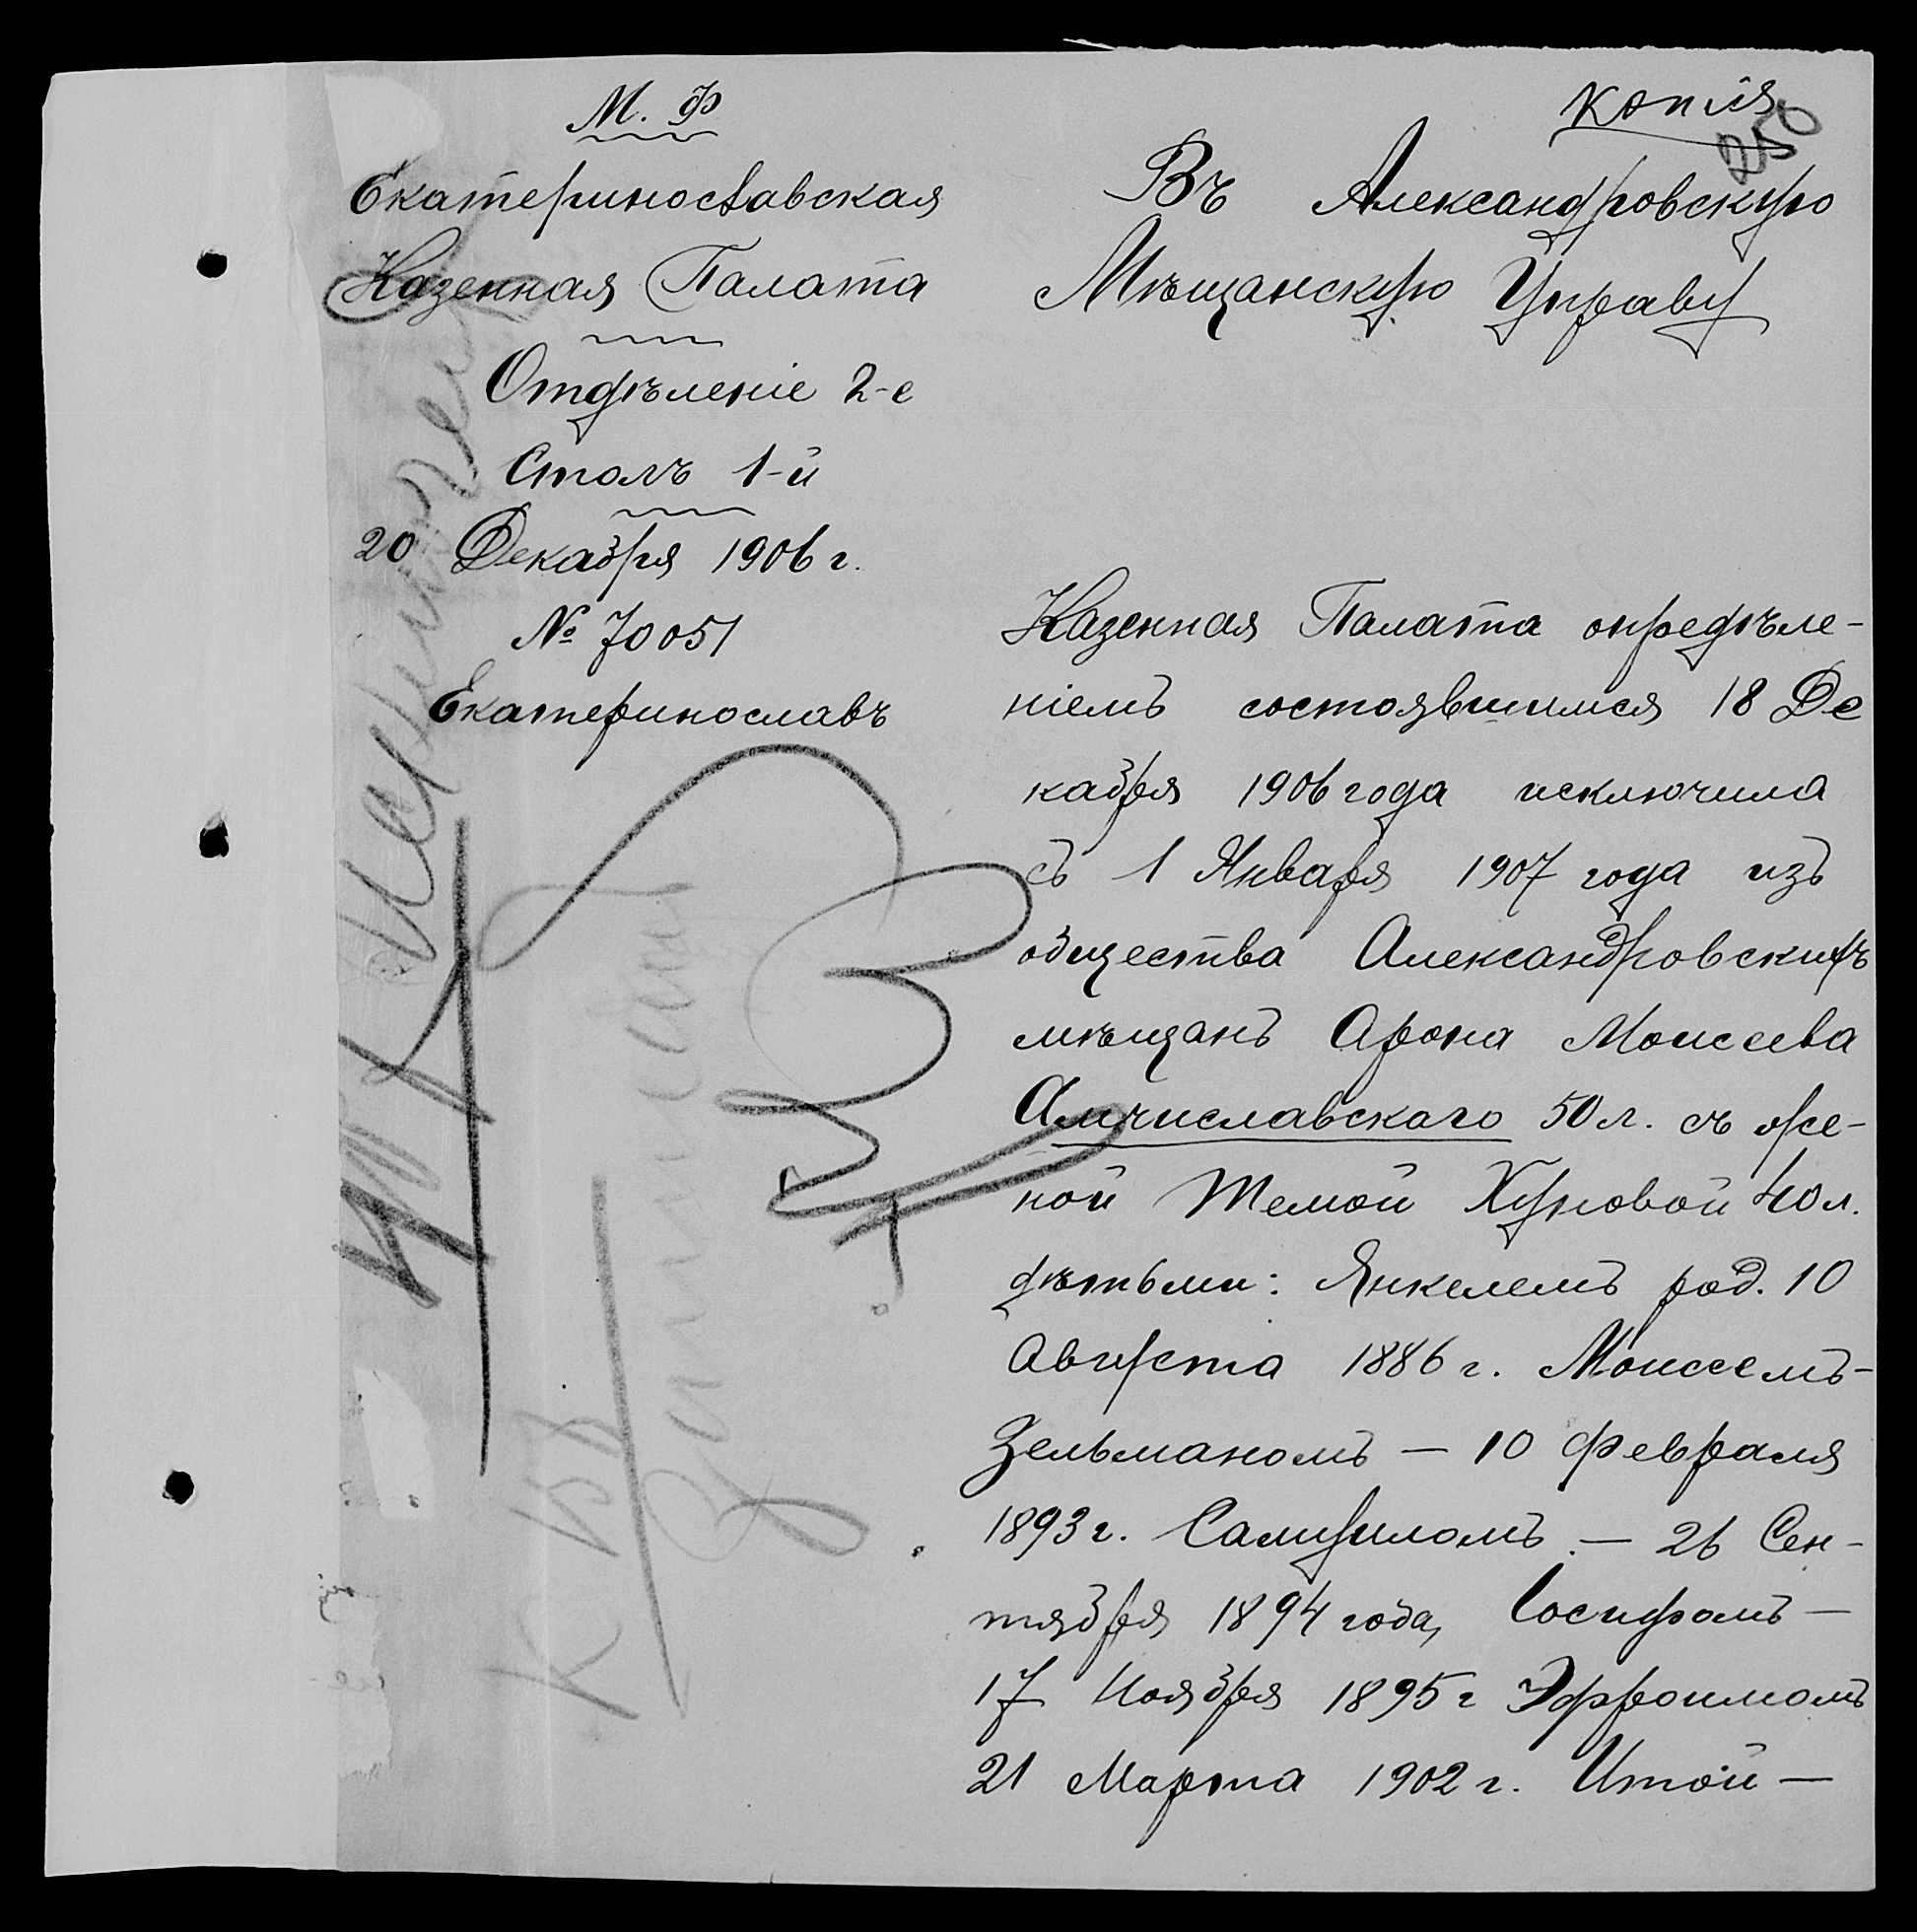 М. Ф
Екатеринославская
Казенная Палата
Отдѣленіе 2-е
Столъ 1-й
20 Декабря 1906 г.
№ 70051
Екатеринославъ
Копія
250
Въ Александровскую
Мѣщанскую Управу
Казенная Палата опредѣле-
ніемъ состоявшимся 18 Де
кабря 1906 года исключила
съ 1 Января 1907 года изъ
общества Александровскихъ
мѣщанъ Арона Моисеева
Амчиславскаго 50 л. съ же-
ной Темой Хуновой 40 л.
дѣтьми: Янкелемъ род. 10
Августа 1886 г. Моисеемъ-
Зельманомъ — 10 февраля
1893 г. Самуиломъ — 26 Сен-
тября 1894 года, Іосифомъ —
17 Ноября 1895 г Эфроимомъ
21 Марта 1902 г. Итой —